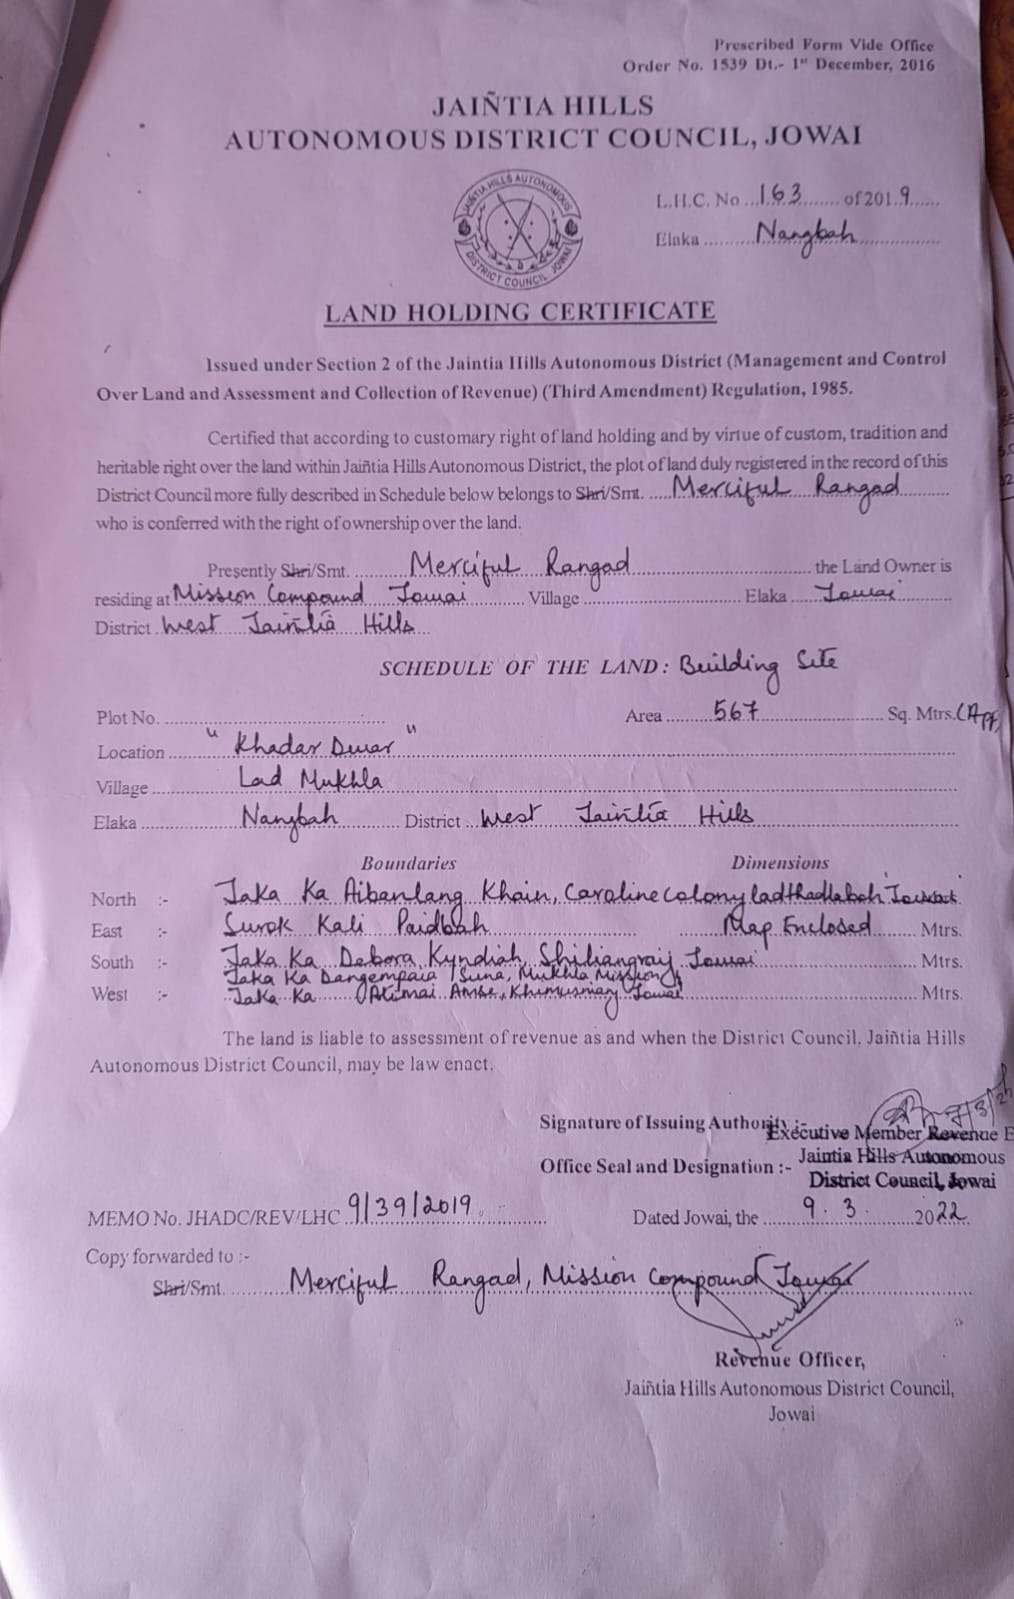 Prescribed Form Vide Office
Order No. 1539 Dt.- 1st December, 2016
JAIÑTIA HILLS
AUTONOMOUS DISTRICT COUNCIL, JOWAI
JAIÑTIA HILLS AUTONOMOUS
DISTRICT COUNCIL JOWAI
L.H.C. No ...163........ of 201.9......
Elaka ..........Nangbah................
LAND HOLDING CERTIFICATE
Issued under Section 2 of the Jaintia Hills Autonomous District (Management and Control
Over Land and Assessment and Collection of Revenue) (Third Amendment) Regulation, 1985.
Certified that according to customary right of land holding and by virtue of custom, tradition and
heritable right over the land within Jaiñtia Hills Autonomous District, the plot of land duly registered in the record of this
District Council more fully described in Schedule below belongs to Shri/Smt. .....Merciful Rangad..........
who is conferred with the right of ownership over the land.
Presently Shri/Smt. ..........Merciful Rangad.......................................... the Land Owner is
residing at Mission Compound Jowai ............ Village ....................................... Elaka .....Jowai............
District .West Jaiñtia Hills...
SCHEDULE OF THE LAND : Building Site
Plot No. ......................................................
Area ..........567............................... Sq. Mtrs.
Location ........" Khadar Dwar "........................................................
Village ..................Lad Mukhla........................................................
Elaka ......................Nangbah............... District ...West Jaiñtia Hills..............................
Boundaries Dimensions
North :- Jaka Ka Aibanlang Khain, Caroline colony ladthadlaboh Jowai
East :- Surok Kali Paidbah ........ Map Enclosed ........ Mtrs.
South :- Jaka Ka Debora Kyndiah, Shiliangraij Jowai ........ Mtrs.
Jaka Ka Dangempaia Suna, Mukhla Mission
West :- Jaka Ka Atimai Amse, Khimusniang Jowai ........ Mtrs.
The land is liable to assessment of revenue as and when the District Council, Jaiñtia Hills
Autonomous District Council, may be law enact.
Signature of Issuing Authority :-
Executive Member Revenue
Office Seal and Designation :- Jaintia Hills Autonomous
District Council, Jowai
MEMO No. JHADC/REV/LHC 9/39/2019
Dated Jowai, the ........9.3.........2022.
Copy forwarded to :-
Shri/Smt. ..........Merciful Rangad, Mission Compound Jowai
Revenue Officer,
Jaiñtia Hills Autonomous District Council,
Jowai